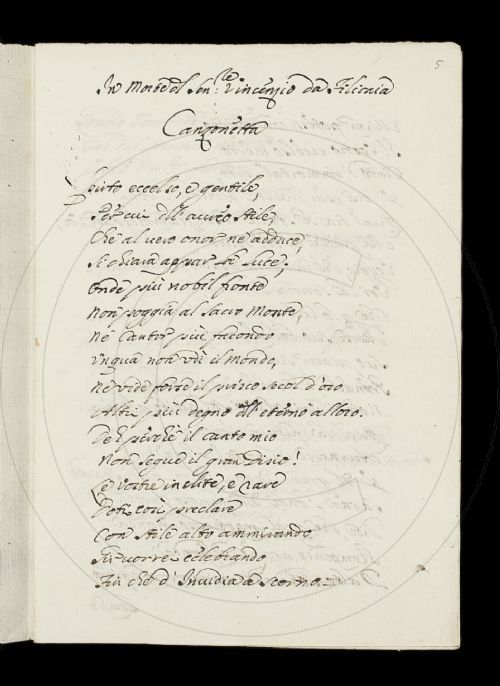 5
In Morte del Sen.re Vincenzio da Filicaia
Canzonetta
Spirto eccelso, e gentile,
Per cui dell' aureo stile,
Che al vero onor ne adduce,
Sì chiara appar la luce;
Onde più nobil fronte
Non poggia al sacro Monte,
Ne Cantor più facondo
Unqua non udì il Mondo,
Ne vide forse il prisco secol d'oro
Altri più degno dell' eterno alloro.
Deh perchè il canto mio
Non segue il gran Disio!
Le vostre inclite, e rare
Doti così preclare
Con stile alto ammirando
Si vorrei celebrando
Far che d' Invidia a scorno